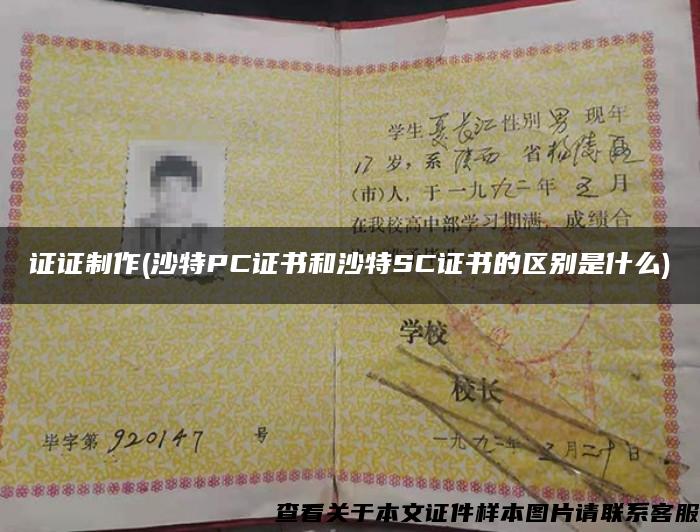 学生夏长江性别男现年
17岁，系陕西省杨陵区
(市)人，于一九九二年五月
在我校高中部学习期满，成绩合
证证制作(沙特PC证书和沙特SC证书的区别是什么)
学校
校长
毕字第920147号
一九九二年五月二十日
查看关于本文证件样本图片请联系客服